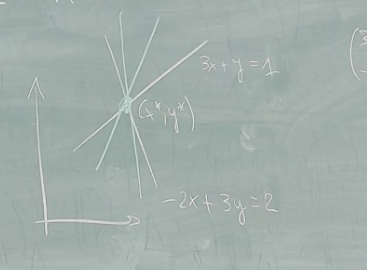 3x+y=1
(x*,y*)
-2x+3y=2
(3